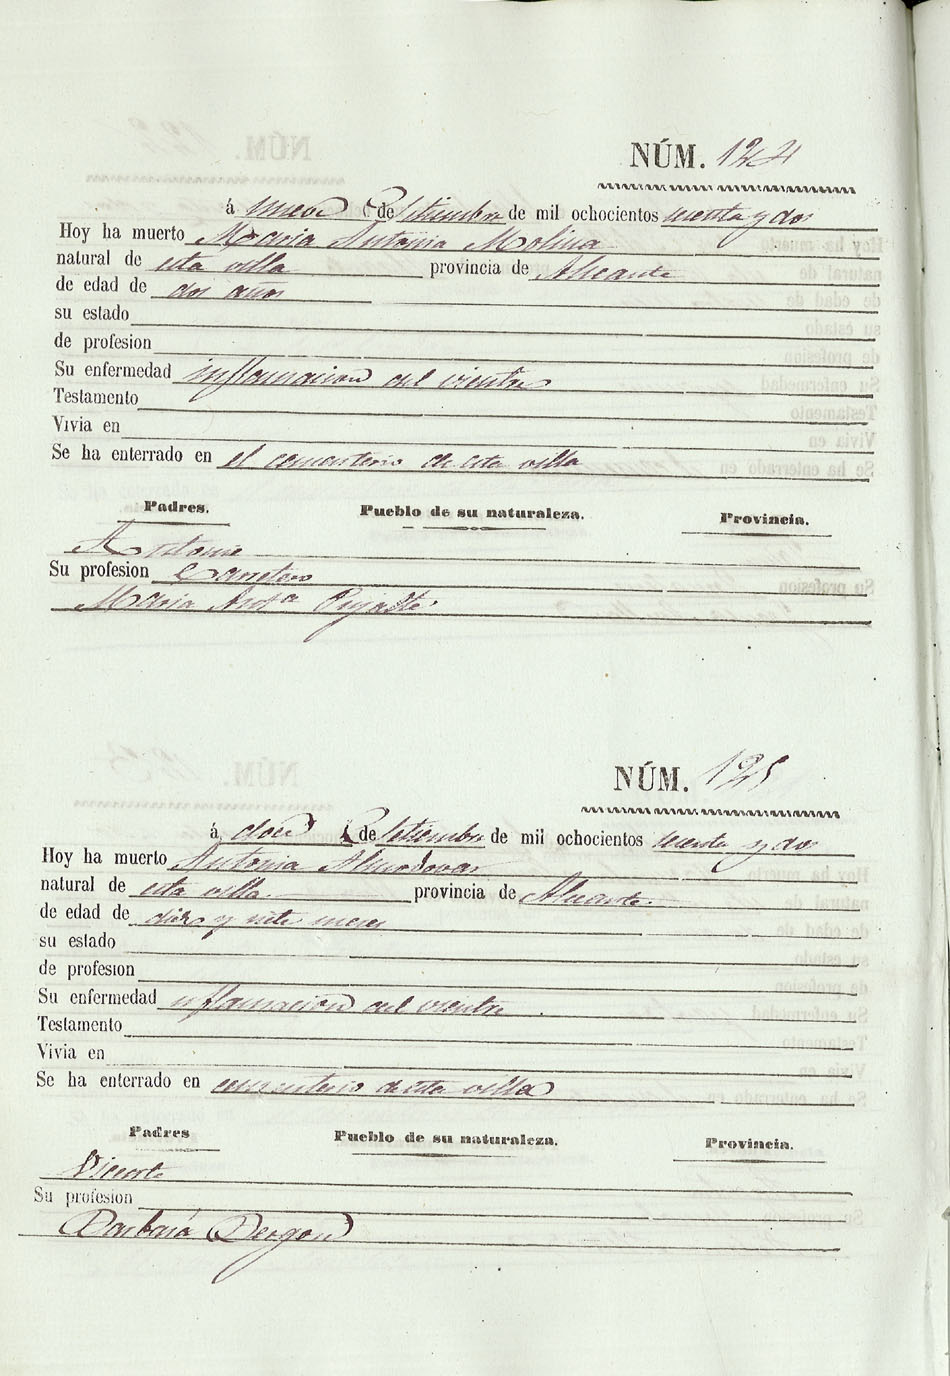 NÚM. 124
á nueve de Setiembre de mil ochocientos sesenta y dos
Hoy ha muerto Maria Antonia Molina
natural de esta villa provincia de Alicante
de edad de dos años
su estado
de profesion
Su enfermedad inflamacion del vientre
Testamento
Vivia en
Se ha enterrado en el cementerio de esta villa
Padres. Pueblo de su naturaleza. Provincia.
Antonio
Su profesion Carretero
Maria
NÚM. 125
á doce de Setiembre de mil ochocientos sesenta y dos
Hoy ha muerto Antonia Almodovar
natural de esta villa provincia de Alicante.
de edad de diez y siete meses
su estado
de profesion
Su enfermedad inflamacion del vientre
Testamento
Vivia en
Se ha enterrado en cementerio de esta villa
Padres Pueblo de su naturaleza. Provincia.
Vicente
Su profesion
Barbara